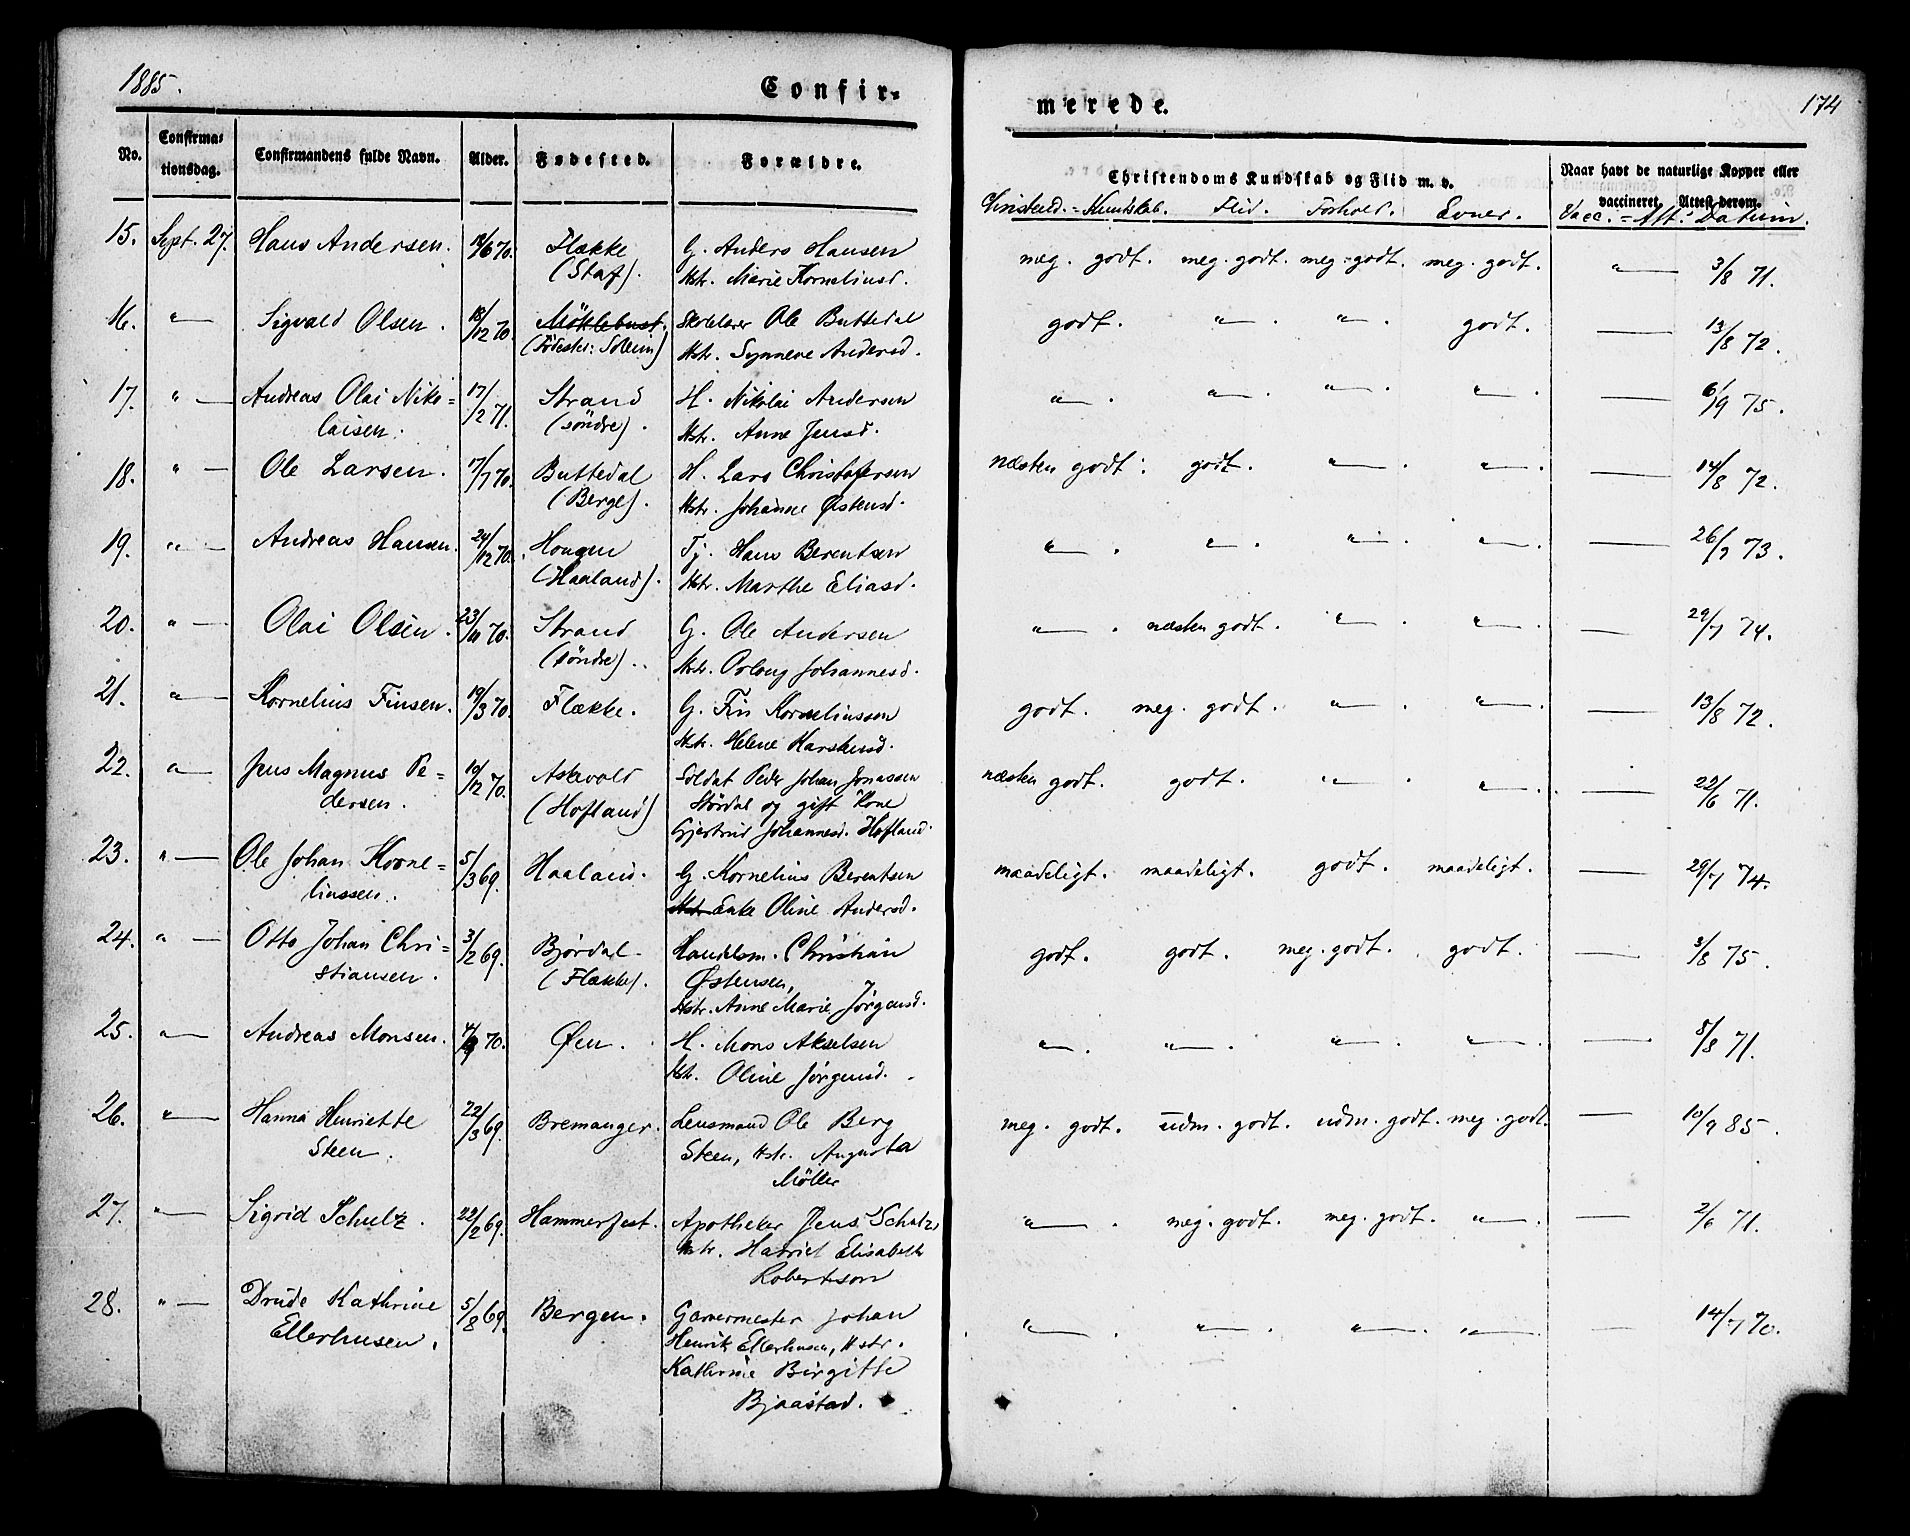 1885.
Confir-
merede.
174
No.
Confirma-
tionsdag.
Confirmandens fulde Navn.
Alder.
Fødested.
Forældre.
Christendoms Kundskab og Flid m. v.
Naar havt de naturlige Kopper eller
vaccineret. Attest derom.
Christend.=Kundskab. Flid. Forhold. Evner. Vacc.=Att. Datum.
15. Sept. 27. Hans Andersen. 18/6 70. Flække G. Anders Hansen meg. godt. meg. godt. meg. godt. meg. godt. " 3/8 71.
(Staf). Hstr. Marie Kornelinsd.
16. " Sigvald Olsen. 18/12 70. Möklebust. Skolelærer Ole Buttedal godt. " " godt. 13/8 72.
(Födested: Soleim) Hstr. Synneve Andersd.
17. " Andreas Olai Niko= 17/2 71. Strand H. Nikolai Andersen " " " " 6/9 75.
laisen. (söndre). Hstr. Anne Jensd.
18. " Ole Larsen. 17/7 70. Buttedal H. Lars Christofersen næsten godt. godt. " " 14/8 72.
(Berge). Hstr. Johanne Østensd.
19. " Andreas Hansen. 24/12 70. Hougen Tj. Hans Berentsen " " " " 26/7 73.
(Haaland). Hstr. Marthe Eliasd.
20. " Olai Olsen. 23/10 70. Strand G. Ole Andersen " næsten godt. " " 29/7 74.
(söndre). Hstr. Johannesd.
21. " Kornelius Finsen. 19/3 70. Flække. G. Fin Korneliussen godt. meg. godt. " " 13/8 72.
Hstr. Helene Karstensd.
22. " Jens Magnus Pe= 10/12 70. Askvold Soldat Peder Johan Jonassen næsten godt. godt. " " 22/6 71.
dersen. (Hofland) Stördal og gift Kone
Gjertrud Johannesd. Hofland.
23. " Ole Johan Korne= 5/3 69. Haaland. G. Kornelius Berentsen maadeligt. maadeligt. godt. maadeligt. 29/7 74.
liussen. Hstr. Enke Oline Andersd.
24. " Otto Johan Chri= 3/2 69. Björdal Handelsm. Christian godt. godt. meg. godt. godt. 3/8 75.
stiansen. (Flække). Østensen,
Hstr. Anne Marie Jörgensd.
25. " Andreas Monsen. 4/9 70. Øen. H. Mons Akselsen " " " " 8/8 71.
Hstr. Oline Jörgensd.
26. " Hanna Henriette 22/3 69. Bremanger. Lensmand Ole Berg meg. godt. udm. godt. udm. godt. meg. godt. 10/9 85.
Steen. Steen, Hstr. Augusta
Möller
27. " Sigrid Schulz. 22/2 69. Hammerfest. Apotheker Jens Schulz, " meg. godt. meg. godt. " 2/6 71.
Hstr. Harriet Elisabeth
Robertson
28. " Drude Kathrine 5/8 69. Bergen. Garvermester Johan " " " " 14/7 70.
Ellerhusen. Henrik Ellerhusen, Hstr.
Kathrine Birgitte
Bjaastad.